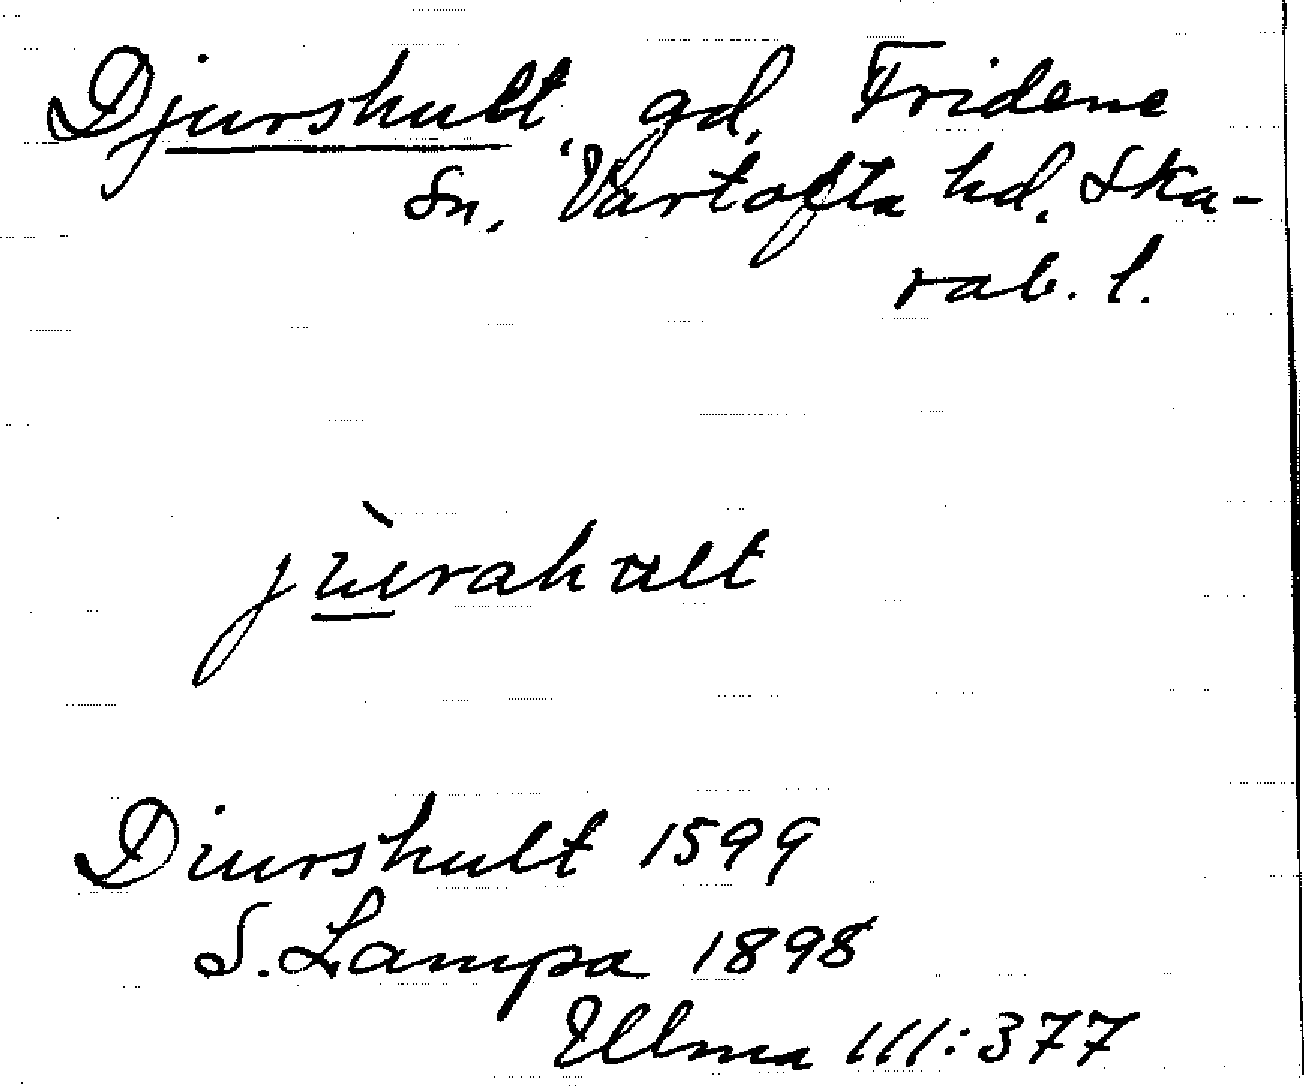 Djurshult gd, Fridene
Sn, Vartofta hd, Ska-
rab. l.
jùrahult
Diurshult 1599
S. Lampa 1898
Ulma III:377